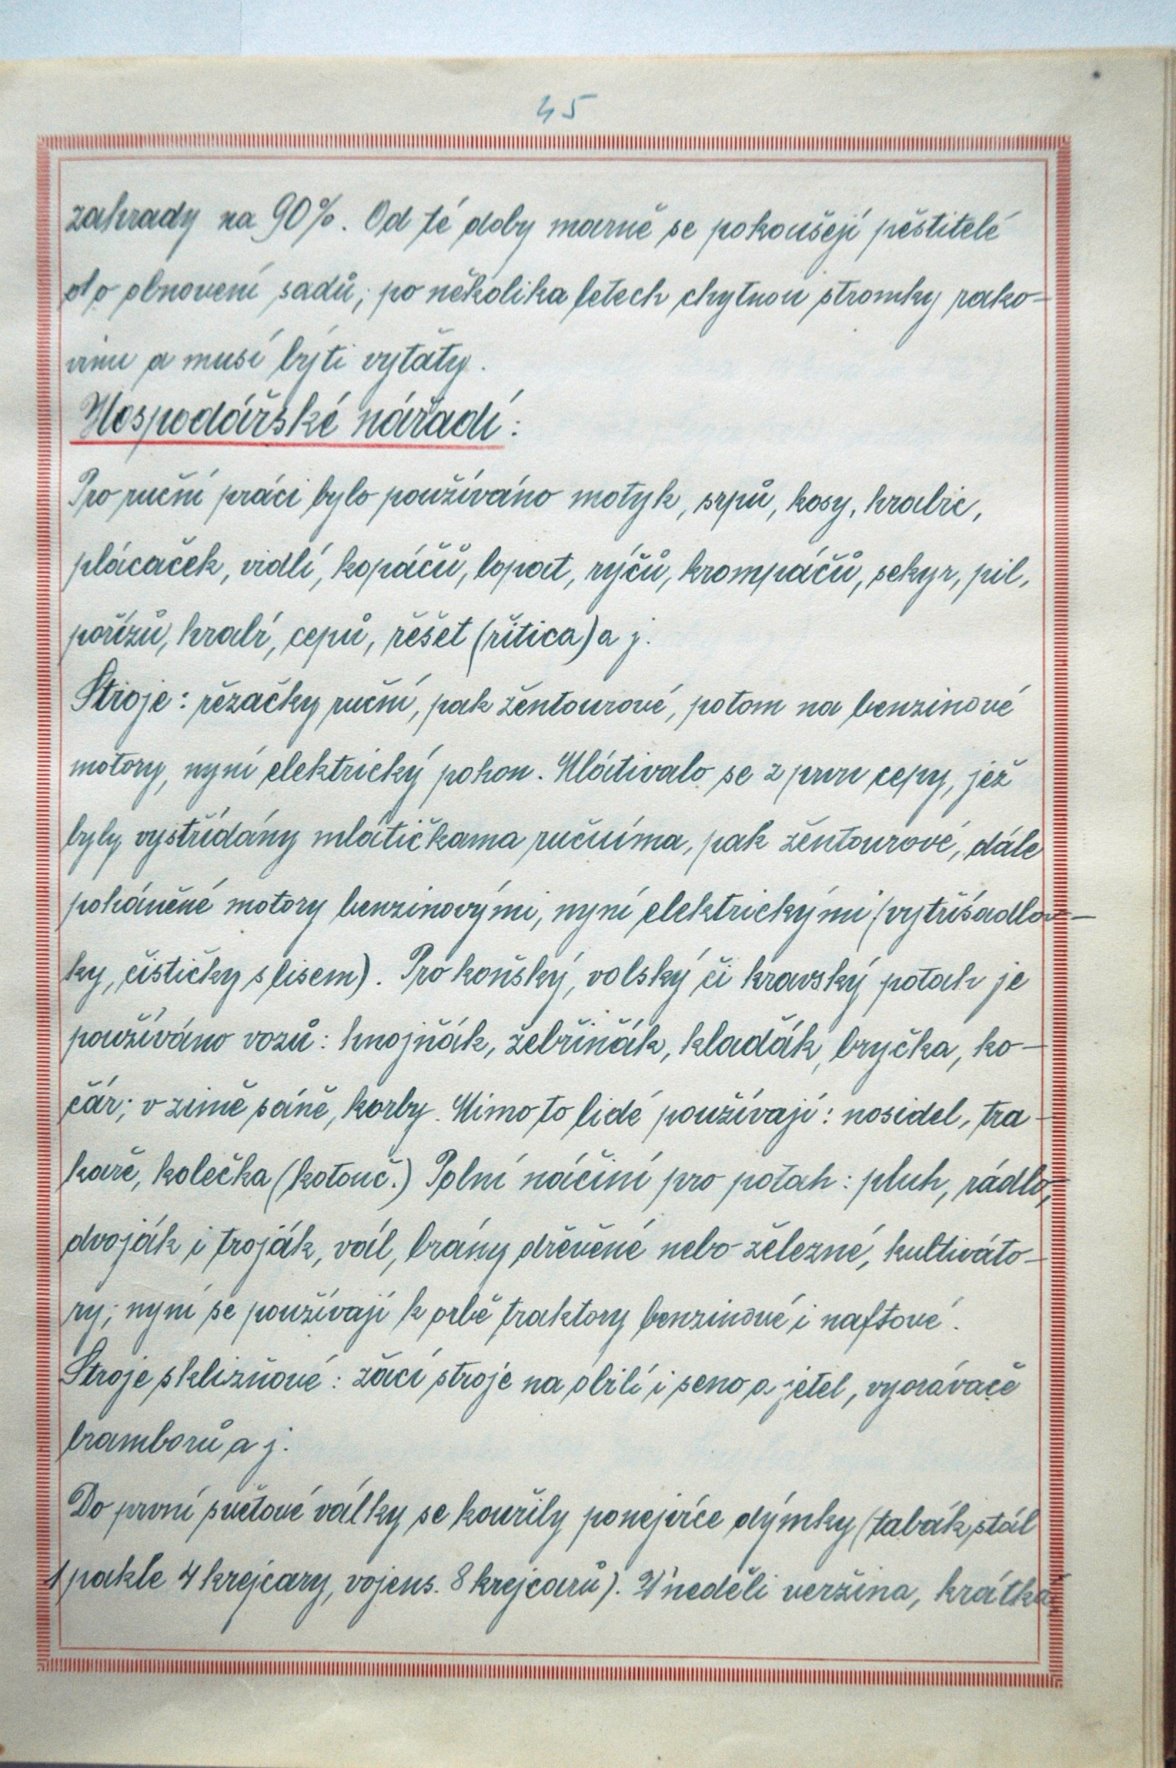 45
zahrady na 90%. Od té doby marně se pokoušejí pěstitelé
o obnovení sadů; po několika letech chytnou stromky rako-
vinu a musí býti vyťaty.
Hospodářské nářadí:
Pro ruční práci bylo používáno motyk, srpů, kosy, hrabic,
plácaček, vidlí, kopáčů, lopat, rýčů, krompáčů, sekyr, pil,
pořízů, hrabí, cepů, řešet (řitica) a j.
Stroje: řezačky ruční, pak žentourové, potom na benzinové
motory, nyní elektrický pohon. Mlátivalo se z prvu cepy, jež
byly vystřídány mlátičkama ručníma, pak žentourové, dále
poháněné motory benzinovými, nyní elektrickými (vytřísadlov-
ky, čističky s lisem). Pro koňský, volský či kravský potah je
používáno vozů: hnojňák, žebřiňák, kladák, bryčka, ko-
čár; v zimě sáně, korby. Mimo to lidé používají: nosidel, tra-
kaře, kolečka (kotouč.) Polní náčiní pro potah: pluh, rádlo,
dvoják i troják, vál, brány dřevěné nebo železné, kultiváto-
ry; nyní se používají k orbě traktory benzinové i naftové.
Stroje sklizňové: žací stroje na obilí i seno a jetel, vyorávače
bramborů a j.
Do první světové války se kouřily ponejvíce dýmky (tabák stál
1 pakle 4 krejcary, vojens. 8 krejcarů). V neděli veržina, krátká,